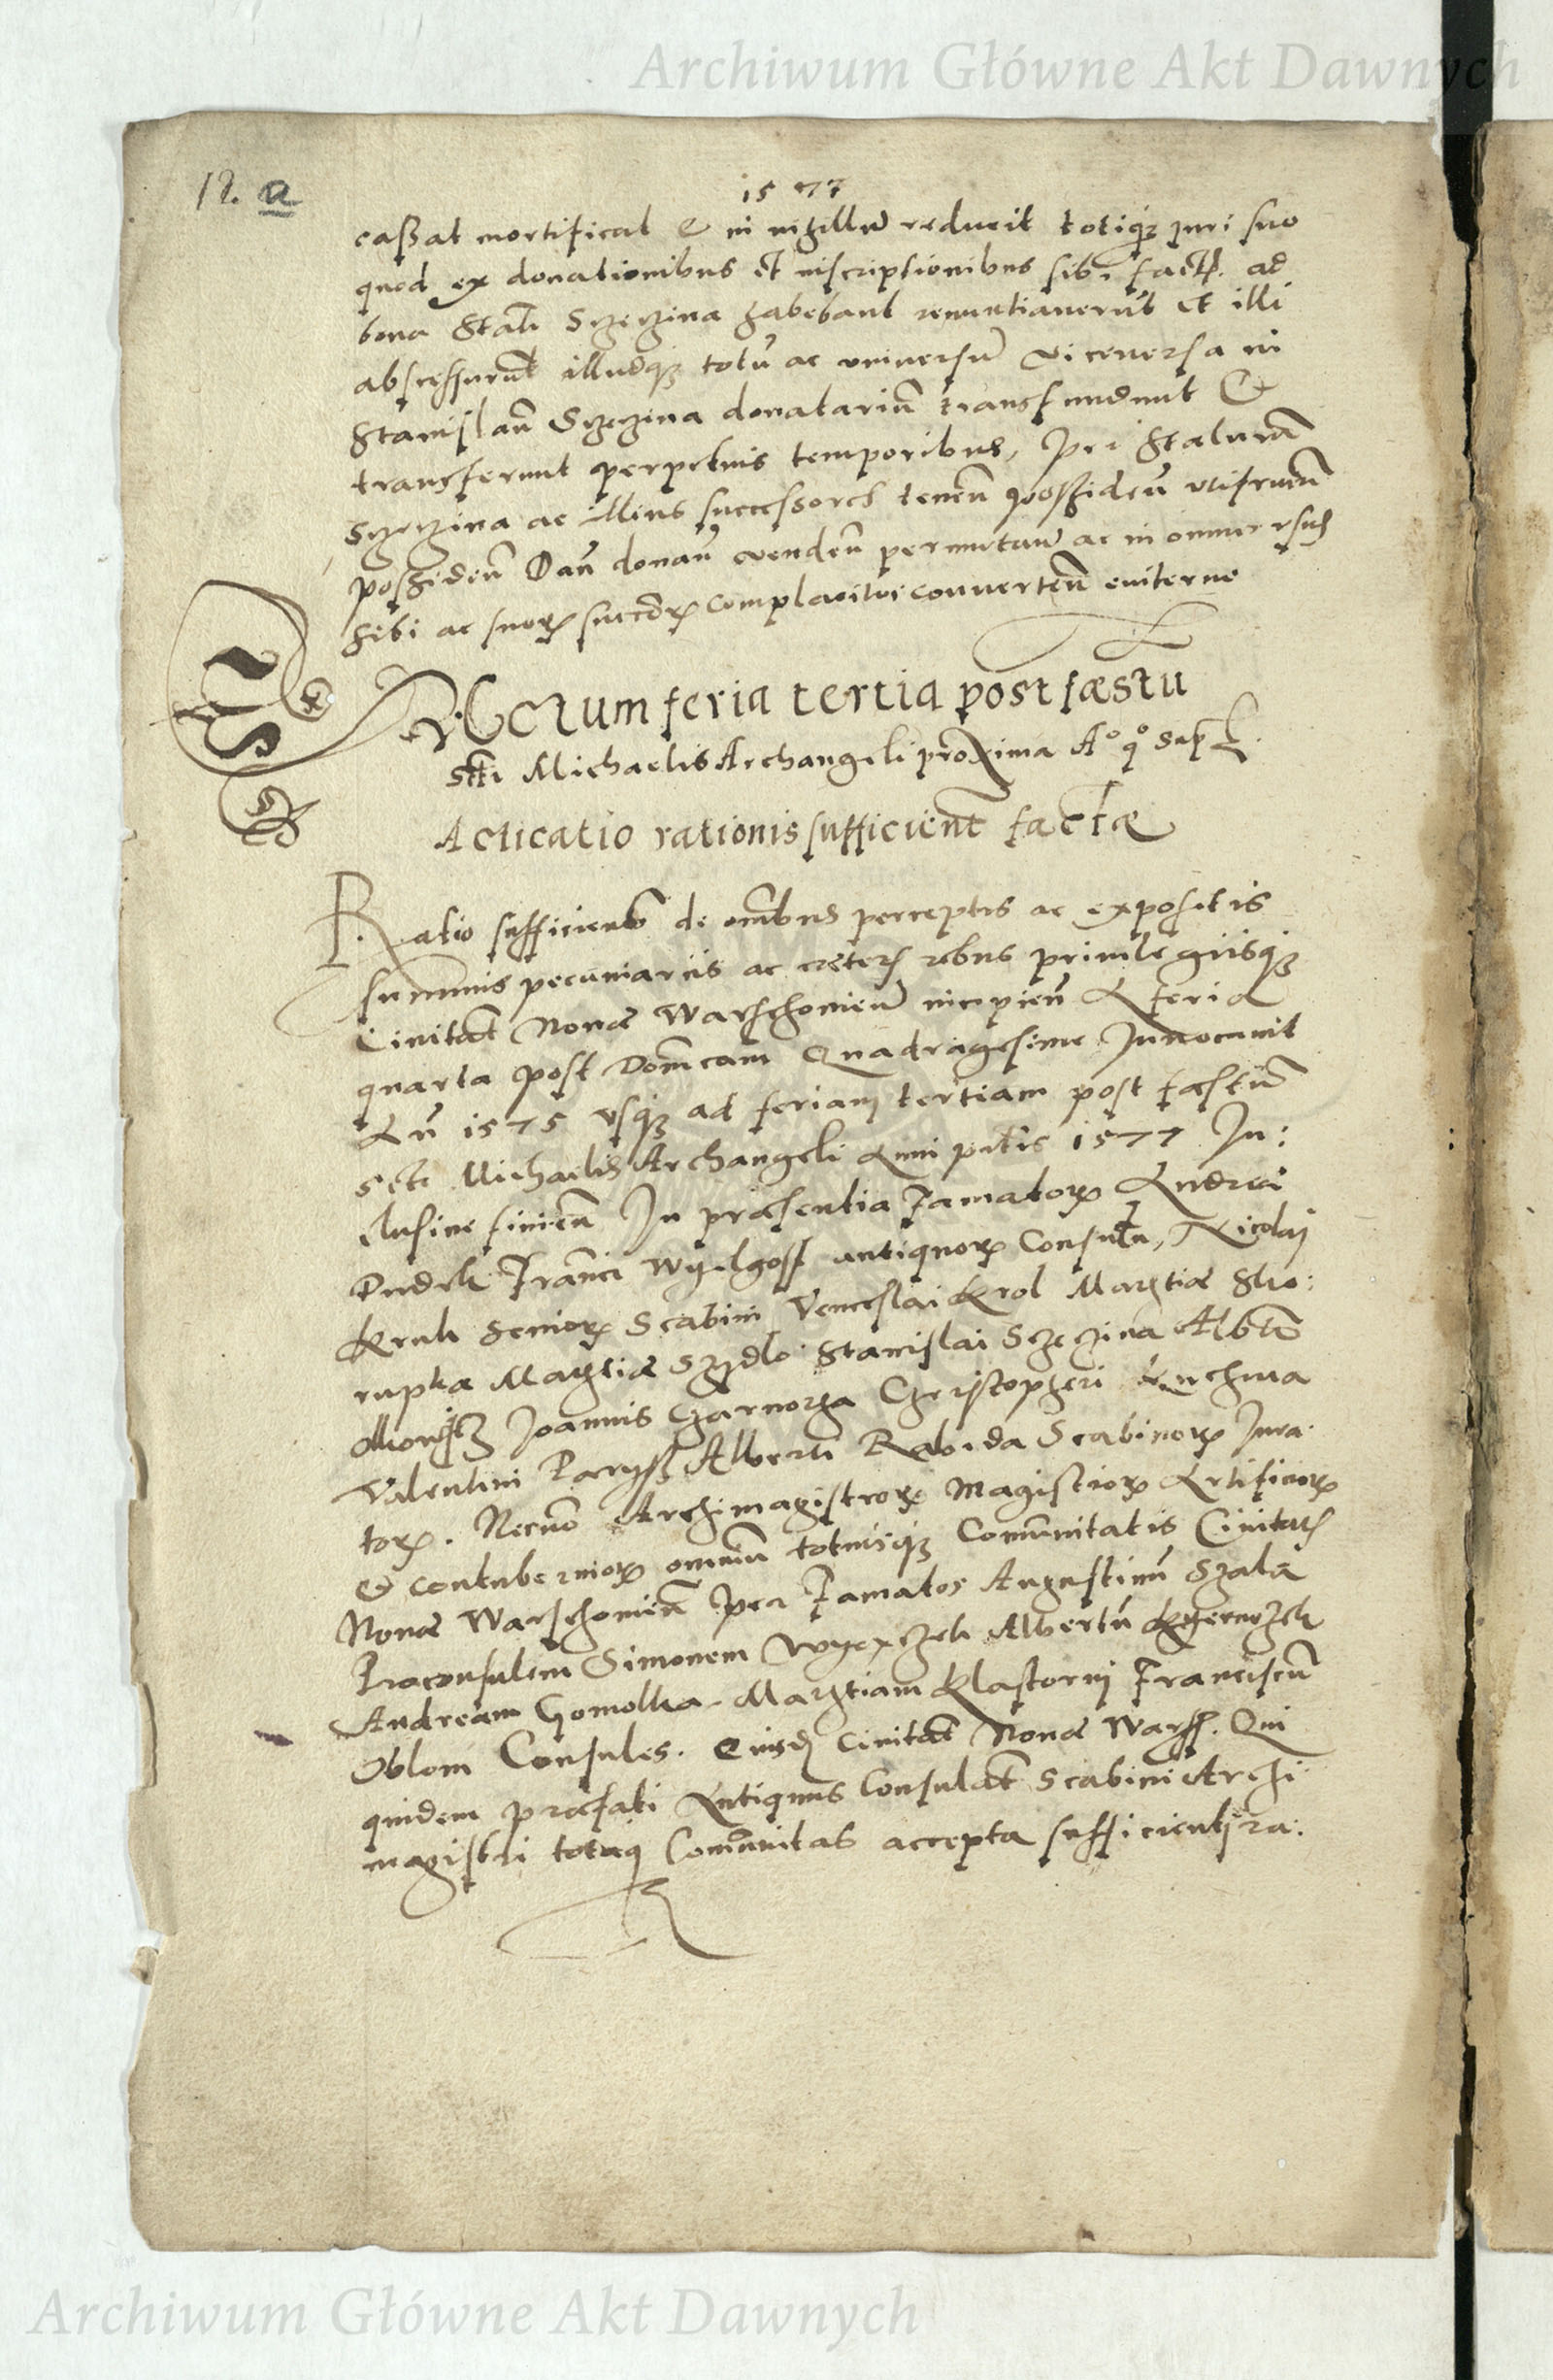 Archiwum Główne Akt Dawnych
18. a
1577
cassat mortificat & in nihillũ reducit totiqȝ juri suo
quod ex donationibus et inscriptionibus sibi fact. ad
bona Stałi Szczezina habebant renuntiaverũt et illi
abscesserunt illudqȝ totũ ac universũ viceversa in
Stanislaũ Szczezina donatariũ transfundunt &
transferunt perpetuis temporibus, per
Szczezina ac illius successores tenen̄ possiden̄ utifruen̄
possiden̄ Dan̄ donan̄ venden̄ permutan̄ ac in omnes usus
sibi ac suoꝝ succoꝝ complacitos converten̄ eviterne
Actum feria tertia post fæstũ
Scti Michaelis Archangeli proxima A° q° sup̱
Acticatio rationis sufficient factæ
Ratio sufficient de omĩbus perceptis ac expositis
summis pecuniariis ac cæteris rebus privilegiisqȝ
Civitat Novæ Warschovien̄ incipien̄ A feria
quarta post Domĩcam Quadragesime Invocavit
An̄ 1575 usqȝ ad feriam tertiam post fæstũ
Scti Michaelis Archangeli Anni pn̄tis 1577 In:
clusive finien̄ In præsentia Famatoꝝ Andreæ
Dudek Franci Wyelgoss antiquoꝝ Consulũ, Nicolaj
Kruk Senioꝝ Scabini Venceslai Krol Mathiæ Sko:
rupka Mathiæ Szydlo Stanislai Szczezina Alberti
Joannis Czarnocza Christopheri Kuchma
Valentini Paryss Alberti Rabida Scabinoꝝ Jura
toꝝ. Necnõ Archimagistroꝝ Magistroꝝ Artificioꝝ
& contubernioꝝ omniũ totiusqȝ Comũnitatis Civitatis
Novæ Warschovien̄ per Famatos Augustinũ Szala
Proconsulem Simonem Wyexzek Albertũ
Andream Gomolka Mathiam Klastorny Franciscũ
Oblom Consules. Eiusd Civitat Novæ Warss. Qui
quidem præfati Antiquus Consulat Scabini Archi
magistri totaqȝ Comũnitas accepta sufficienti ra:
Archiwum Główne Akt Dawnych